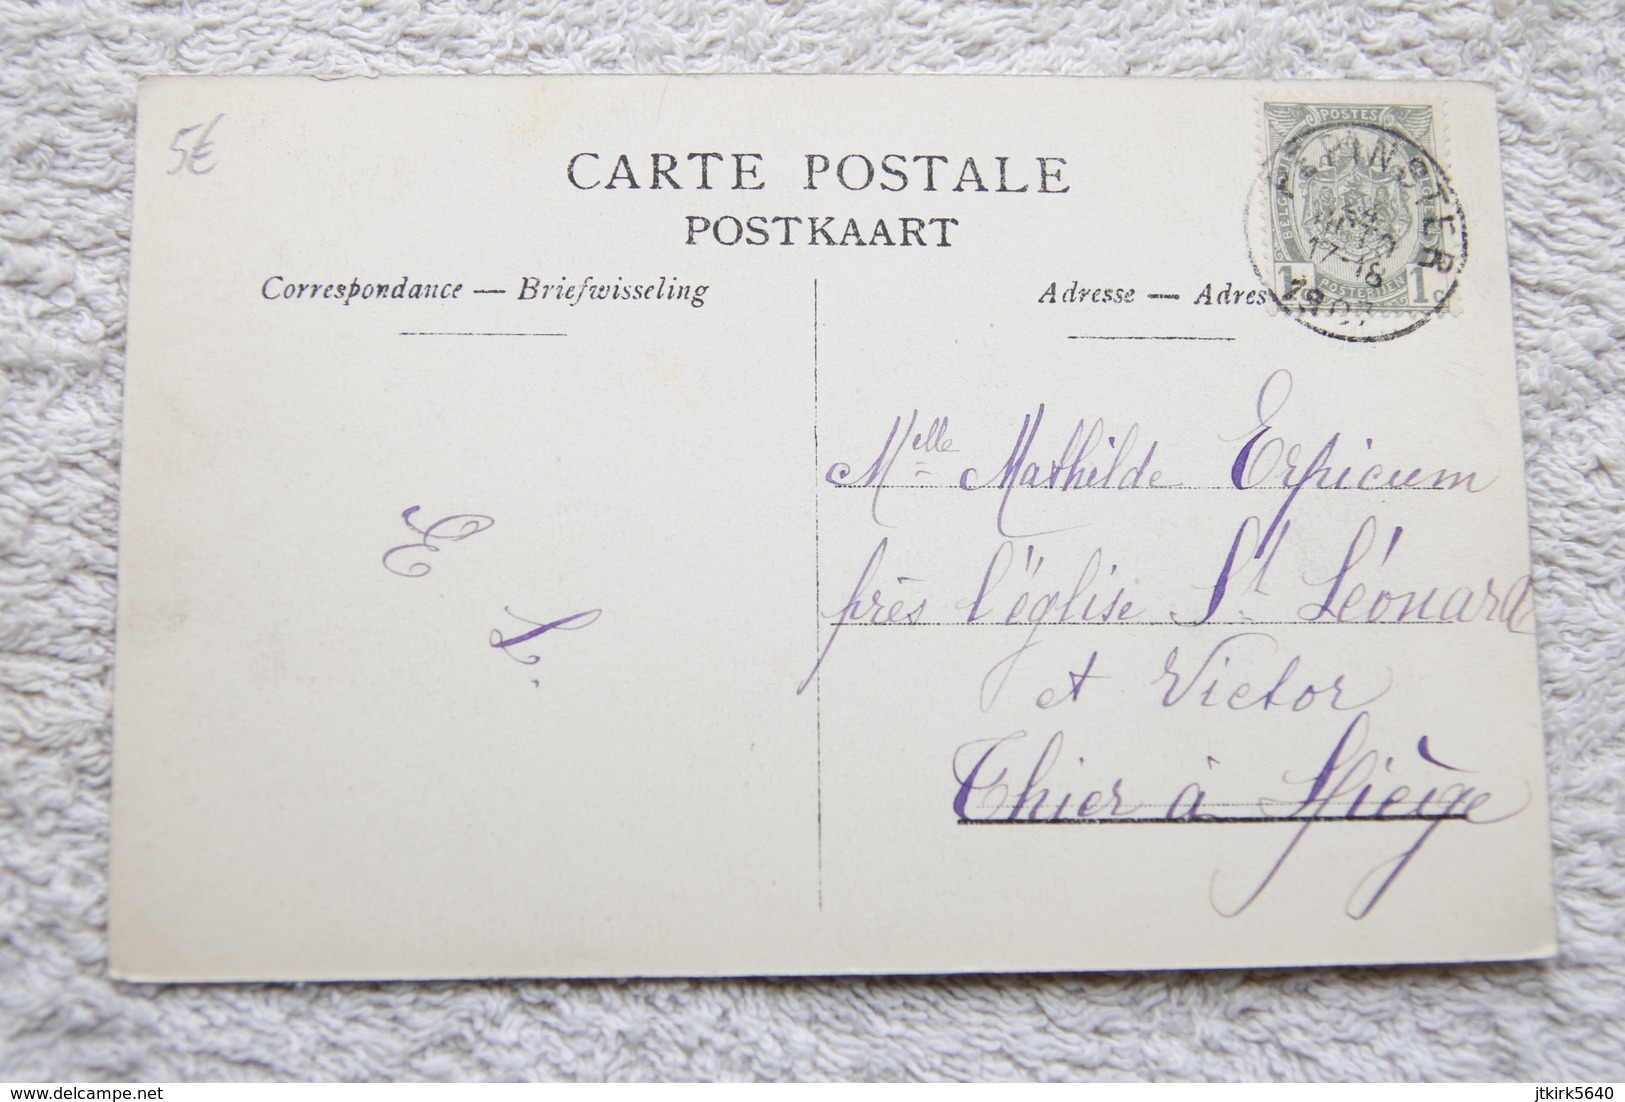 5€
CARTE POSTALE
POSTKAART
Correspondance — Briefwisseling
Adresse — Adres
POSTES
POSTERIJEN
1 c 1 c
PEPINSTER
17-18
1907
Mlle Mathilde Erpicum
près l'église St Léonard
et Victor
Thier à Liège
E
L.
www.delcampe.net
jtkirk5640